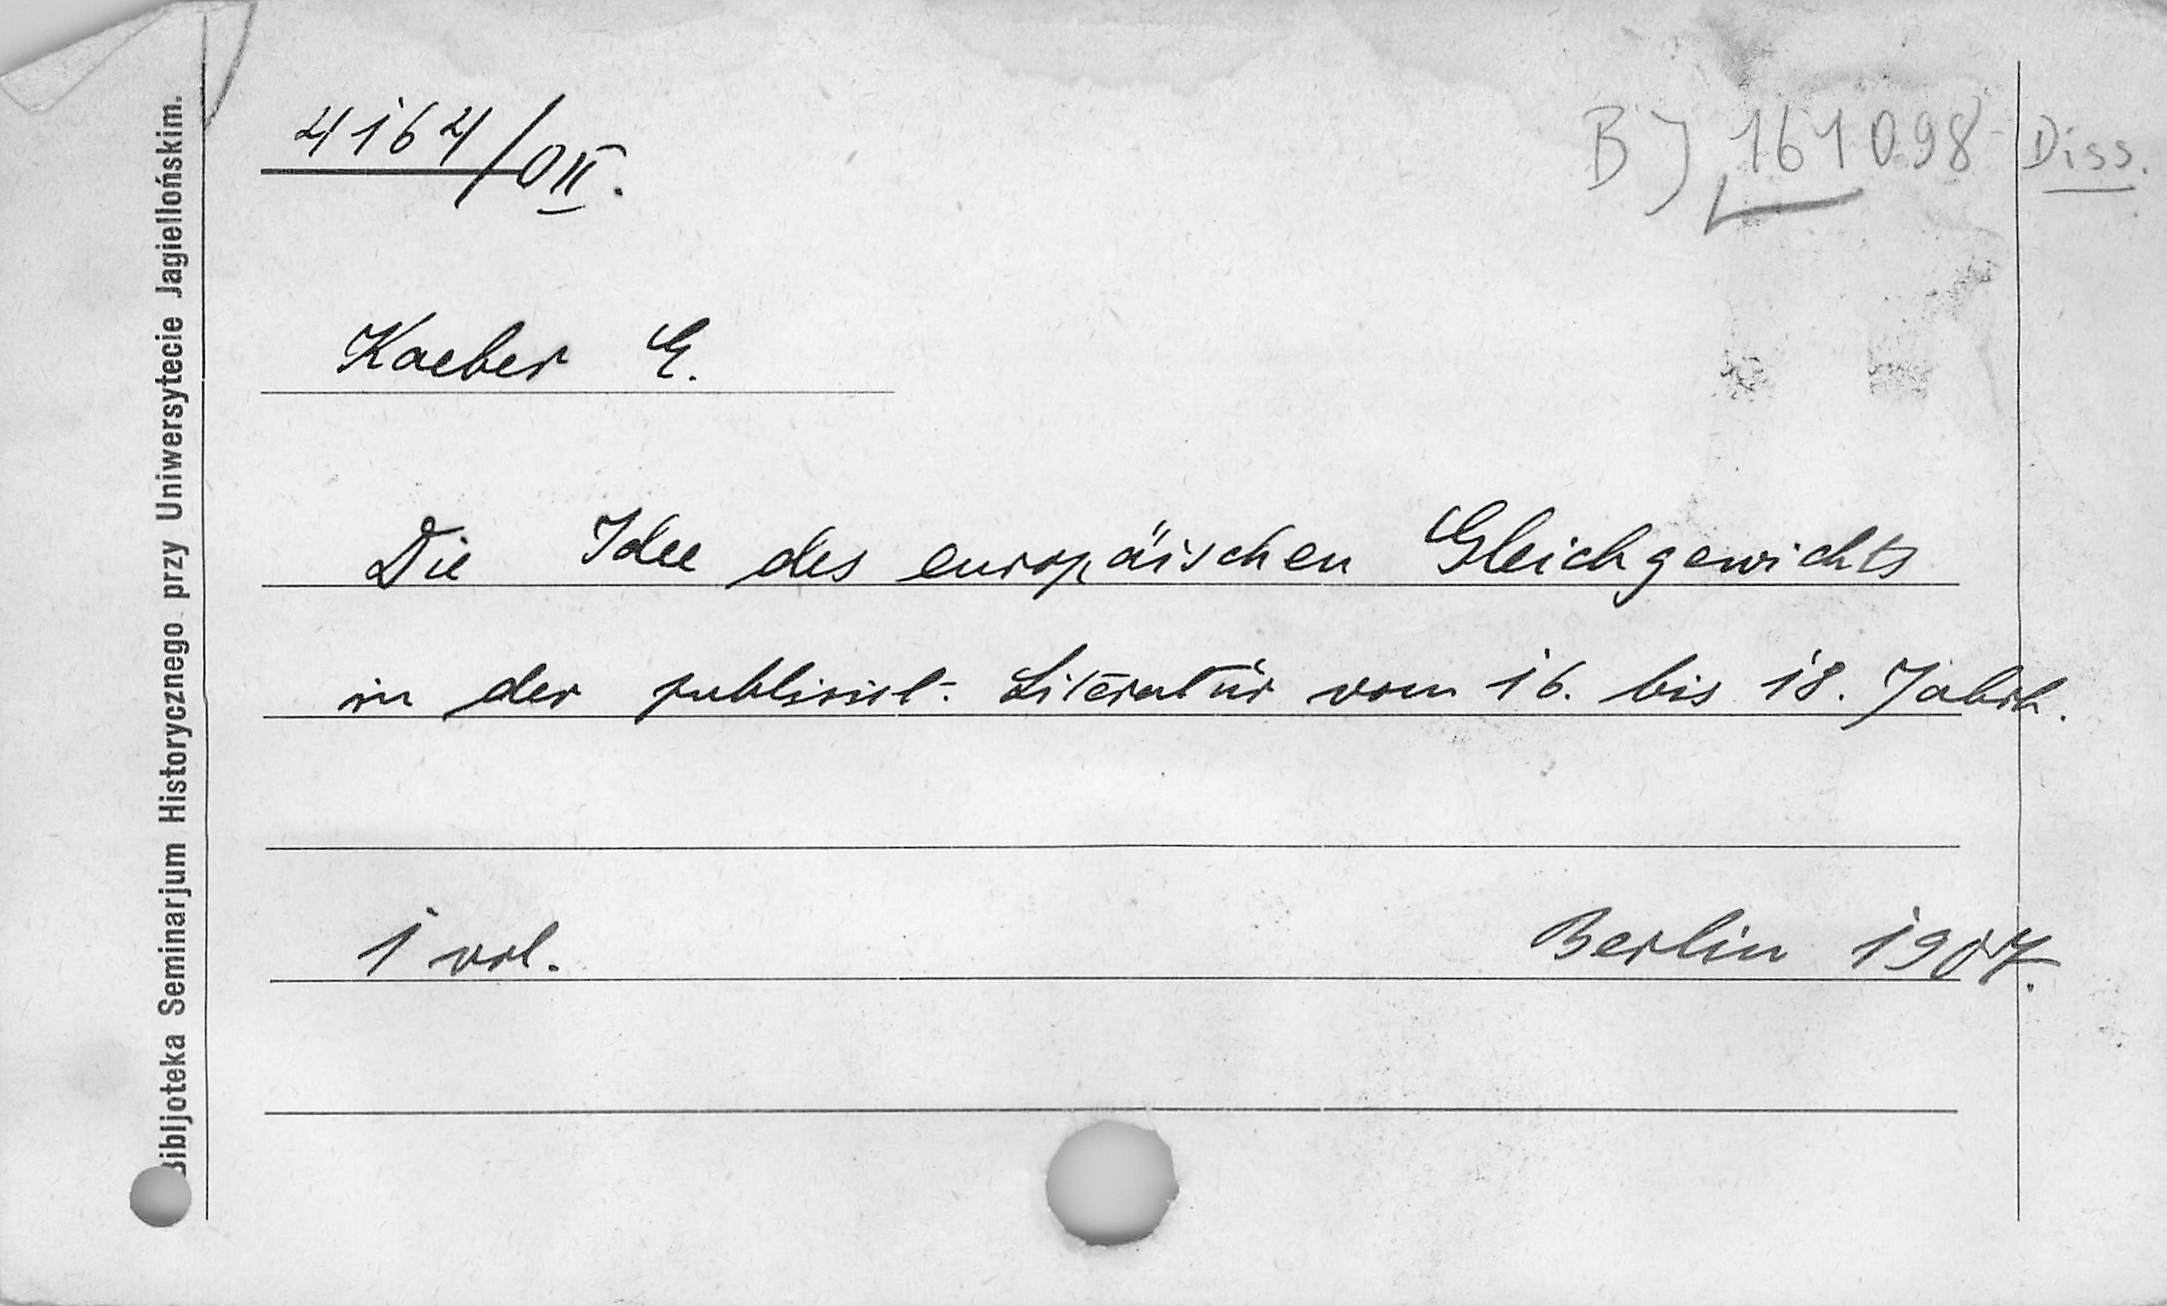 4164/OII.
BJ 161098 Diss.
Kaeber E.
Die Idee des europäischen Gleichgewichts
in der publizist. Literatur vom 16. bis 18. Jahrh.
1 vol. Berlin 1907.
Bibljoteka Seminarjum Historycznego przy Uniwersytecie Jagiellońskim.